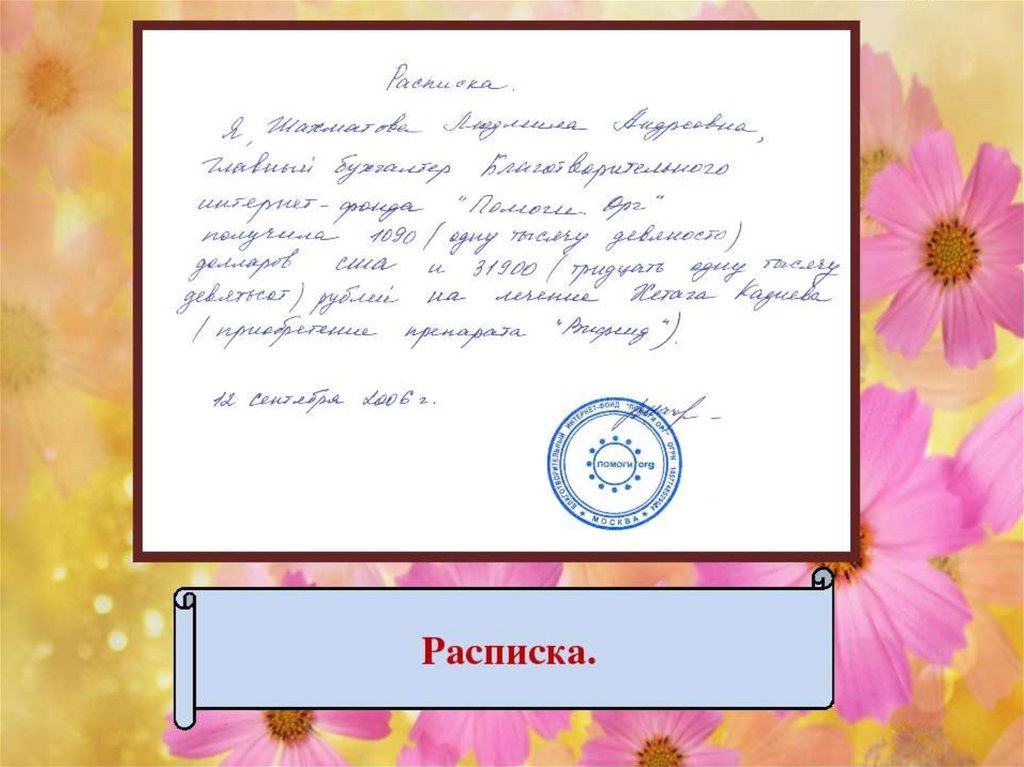 Расписка.
Я, Шахматова Людмила Андреевна,
главный бухгалтер Благотворительного
интернет-фонда "Помоги. Орг"
получила 1090 (одну тысячу девяносто)
долларов сша и 31900 (тридцать одну тысячу
девятьсот) рублей на лечение Хетага Кадиева
(приобретение препарата "Вифенд").
12 сентября 2006 г.
БЛАГОТВОРИТЕЛЬНЫЙ ИНТЕРНЕТ-ФОНД "ПОМОГИ.ОРГ" ОГРН
помоги.org
★ МОСКВА ★
Расписка.